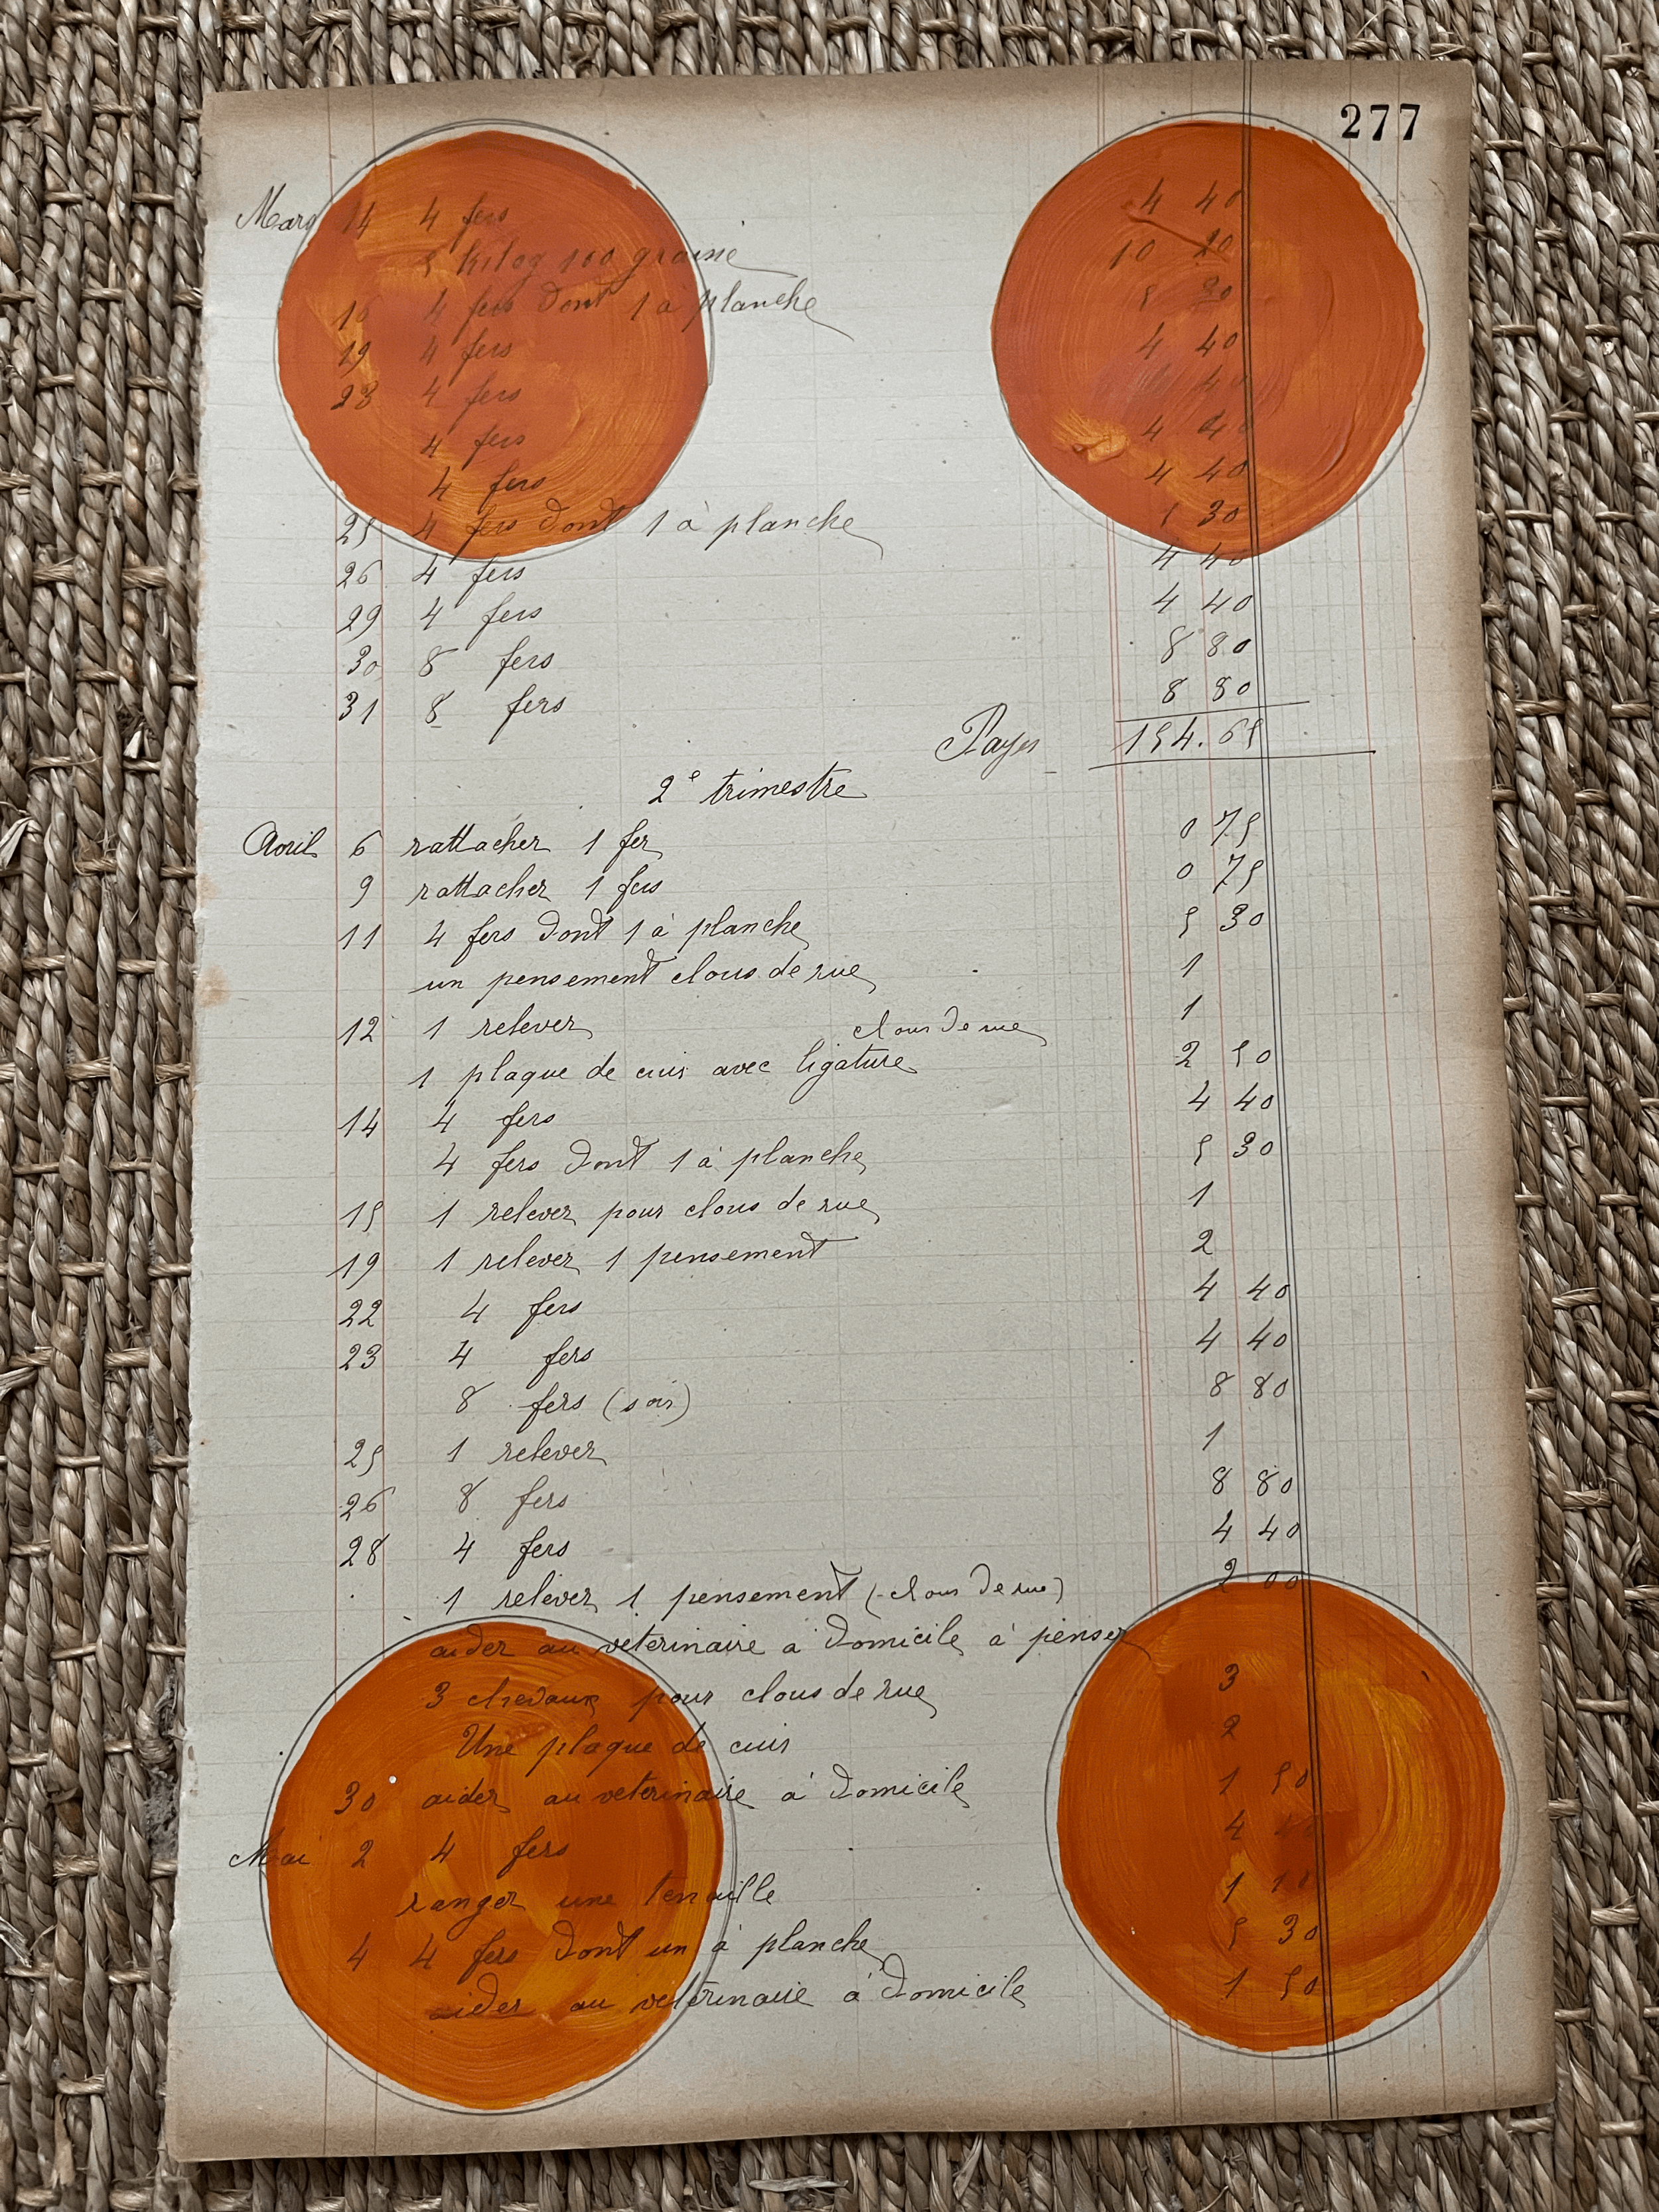 277
Mars 14 4 fers 4 40
5 kilog 100 graine 10 20
16 4 fers dont 1 à planche 5 30
19 4 fers 4 40
23 4 fers 4 40
4 fers 4 40
4 fers 4 40
25 4 fers dont 1 à planche 5 30
26 4 fers 4 40
29 4 fers 4 40
30 8 fers 8 80
31 8 fers 8 80
Payes 154.65
2e trimestre
Avril 6 rattacher 1 fer 0 75
9 rattacher 1 fers 0 75
11 4 fers dont 1 à planche 5 30
un pensement clous de rue 1
12 1 relever clous de rue 1
1 plaque de cuir avec ligature 2 50
14 4 fers 4 40
4 fers dont 1 à planche 5 30
15 1 relever pour clous de rue 1
19 1 relever 1 pensement 2
22 4 fers 4 40
23 4 fers 4 40
8 fers (soir) 8 80
25 1 relever 1
26 8 fers 8 80
28 4 fers 4 40
1 relever 1 pensement (clous de rue) 2 00
aider au veterinaire a domicile à penser
3 chevaux pour clous de rue 3
Une plaque de cuir 2
30 aider au veterinaire à domicile 1 50
Mai 2 4 fers 4 40
ranger une tenaille 1
4 4 fers dont un à planche 5 30
aider au veterinaire à domicile 1 50